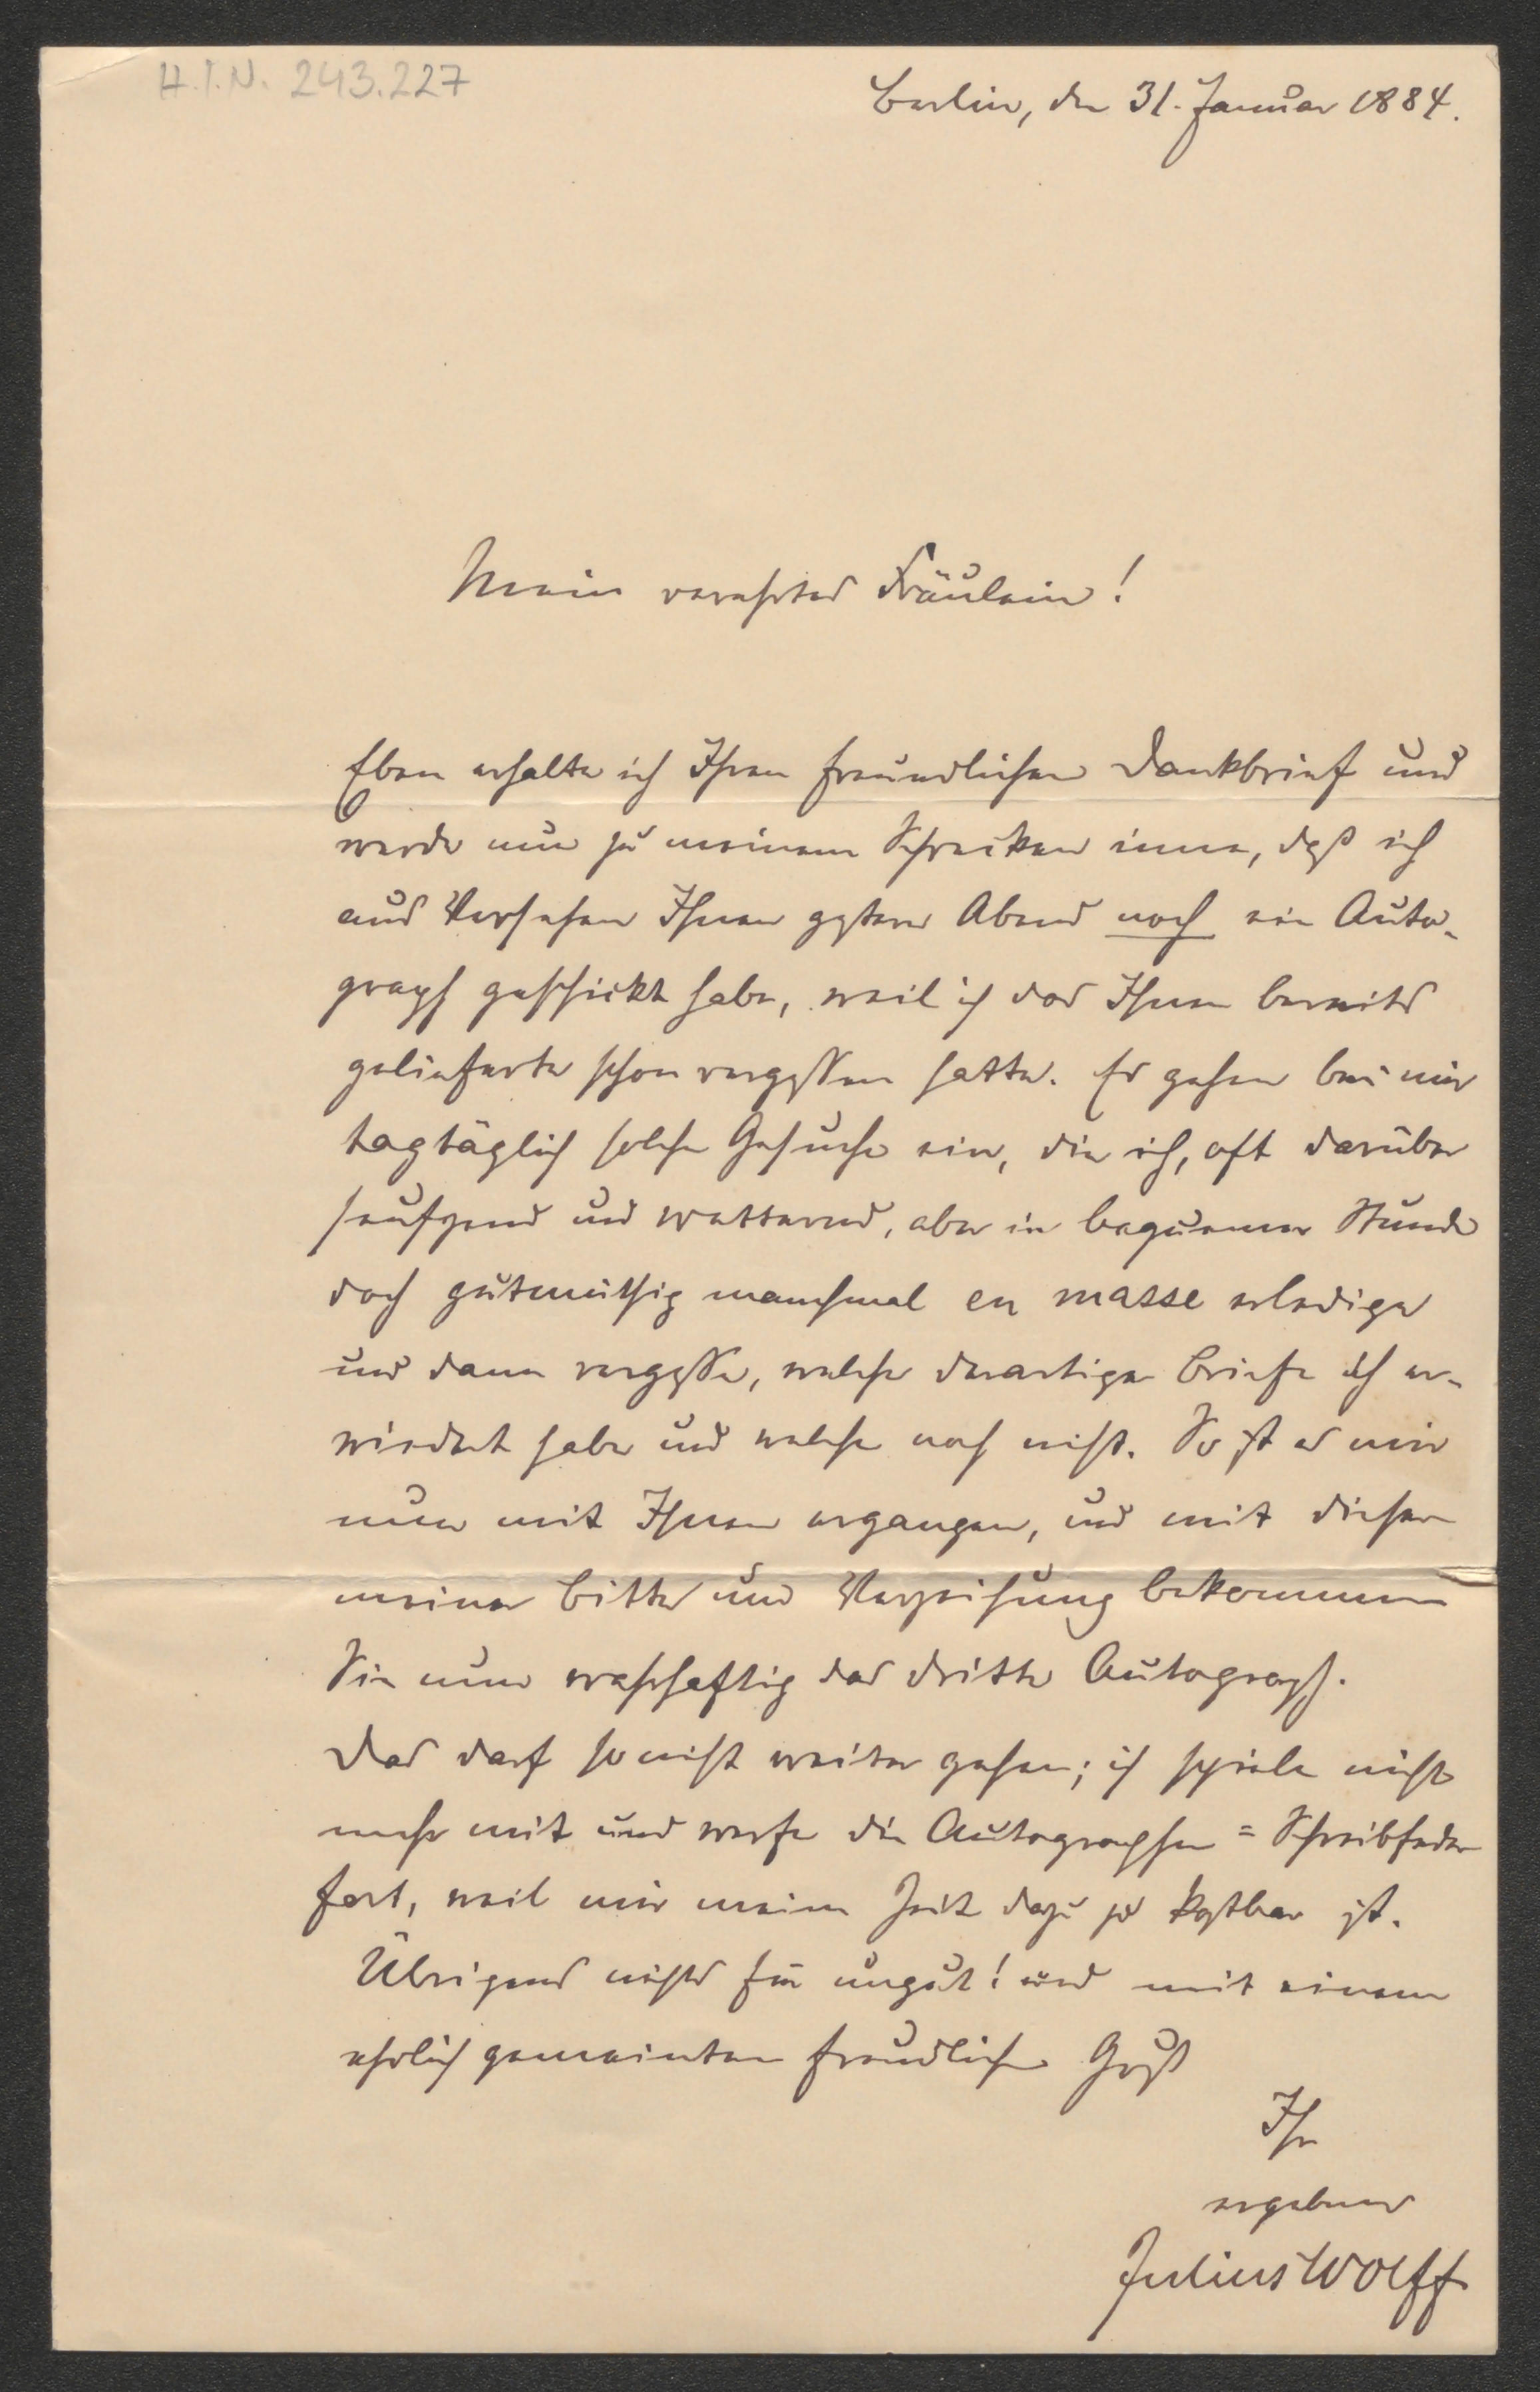 H.I.N. 243.227
Berlin, den 31. Januar 1884.
Mein verehrtes Fräulein!
Eben erhalte ich Ihren freundlichen Dankbrief und
werde nun zu meinem Schrecken inne, daß ich
aus Versehen Ihnen gestern Abend noch ein Auto-
graph geschickt habe, weil ich das Ihnen bereits
gelieferte schon vergessen hatte. Es gehen bei mir
tagtäglich solche Gesuche ein, die ich, oft darüber
seufzend und wetternd, aber in bequemer Stunde
doch gutmüthig manchmal en masse erledige
und dann vergesse, welche derartige Briefe ich er-
wiedert habe und welche noch nicht. So ist es mir
nun mit Ihnen ergangen, und mit dieser
meiner Bitte um Verzeihung bekommen
Sie nun wahrhaftig das dritte Autograph.
Das darf so nicht weiter gehen; ich spiele nicht
mehr mit und werfe die Autographen=Schreibfeder
fort, weil mir meine Zeit dazu zu kostbar ist.
Übrigens nichts für ungut! und mit einem
ehrlich gemeinten freundlichen Gruß
Ihr
ergebener
Julius Wolff